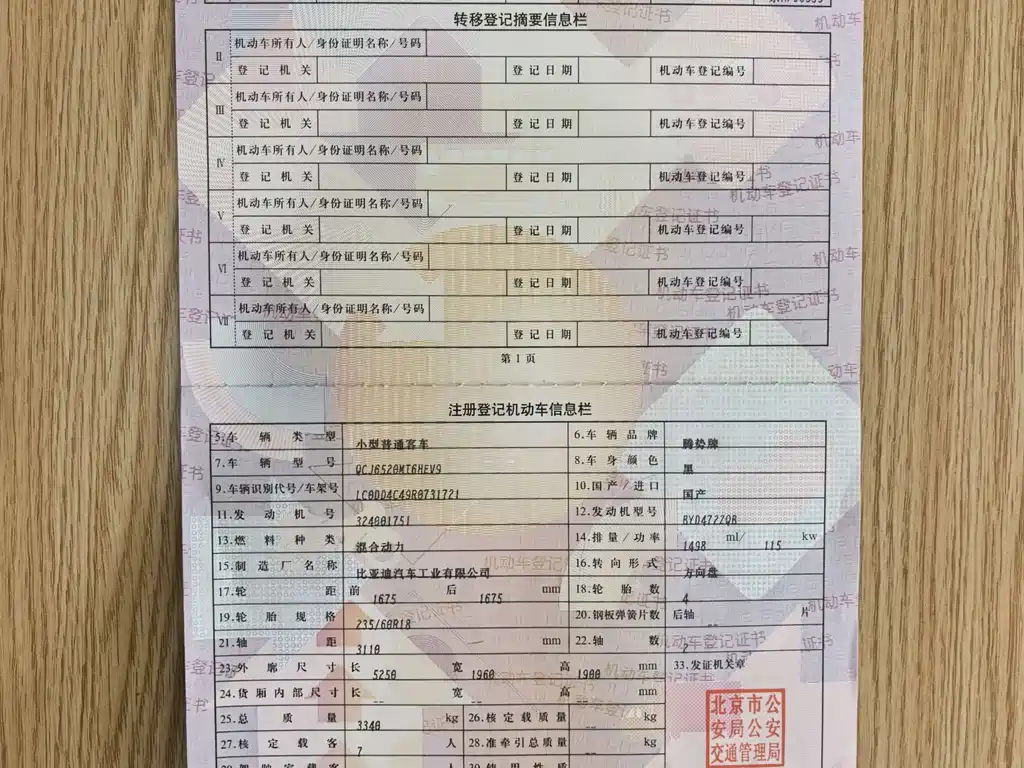 转移登记摘要信息栏
Ⅱ 机动车所有人/身份证明名称/号码
登记机关 登记日期 机动车登记编号
Ⅲ 机动车所有人/身份证明名称/号码
登记机关 登记日期 机动车登记编号
Ⅳ 机动车所有人/身份证明名称/号码
登记机关 登记日期 机动车登记编号
Ⅴ 机动车所有人/身份证明名称/号码
登记机关 登记日期 机动车登记编号
Ⅵ 机动车所有人/身份证明名称/号码
登记机关 登记日期 机动车登记编号
Ⅶ 机动车所有人/身份证明名称/号码
登记机关 登记日期 机动车登记编号
第1页
注册登记机动车信息栏
5.车辆类型 小型普通客车 6.车辆品牌 腾势牌
7.车辆型号 QCJ6520MT6HEV9 8.车身颜色 黑
9.车辆识别代号/车架号 LC0DD4C49R0731721 10.国产/进口 国产
11.发动机号 324001751 12.发动机型号 BYD472ZQB
13.燃料种类 混合动力 14.排量/功率 1498 ml/ 115 kw
15.制造厂名称 比亚迪汽车工业有限公司 16.转向形式 方向盘
17.轮距 前 1675 后 1675 mm 18.轮胎数 4
19.轮胎规格 235/60R18 20.钢板弹簧片数 后轴 -- 片
21.轴距 3110 mm 22.轴数 2
23.外廓尺寸 长 5250 宽 1960 高 1900 mm 33.发证机关章
24.货厢内部尺寸 长 -- 宽 -- 高 -- mm
25.总质量 3340 kg 26.核定载质量 -- kg
27.核定载客 7 人 28.准牵引总质量 -- kg
北京市公
安局公安
交通管理局